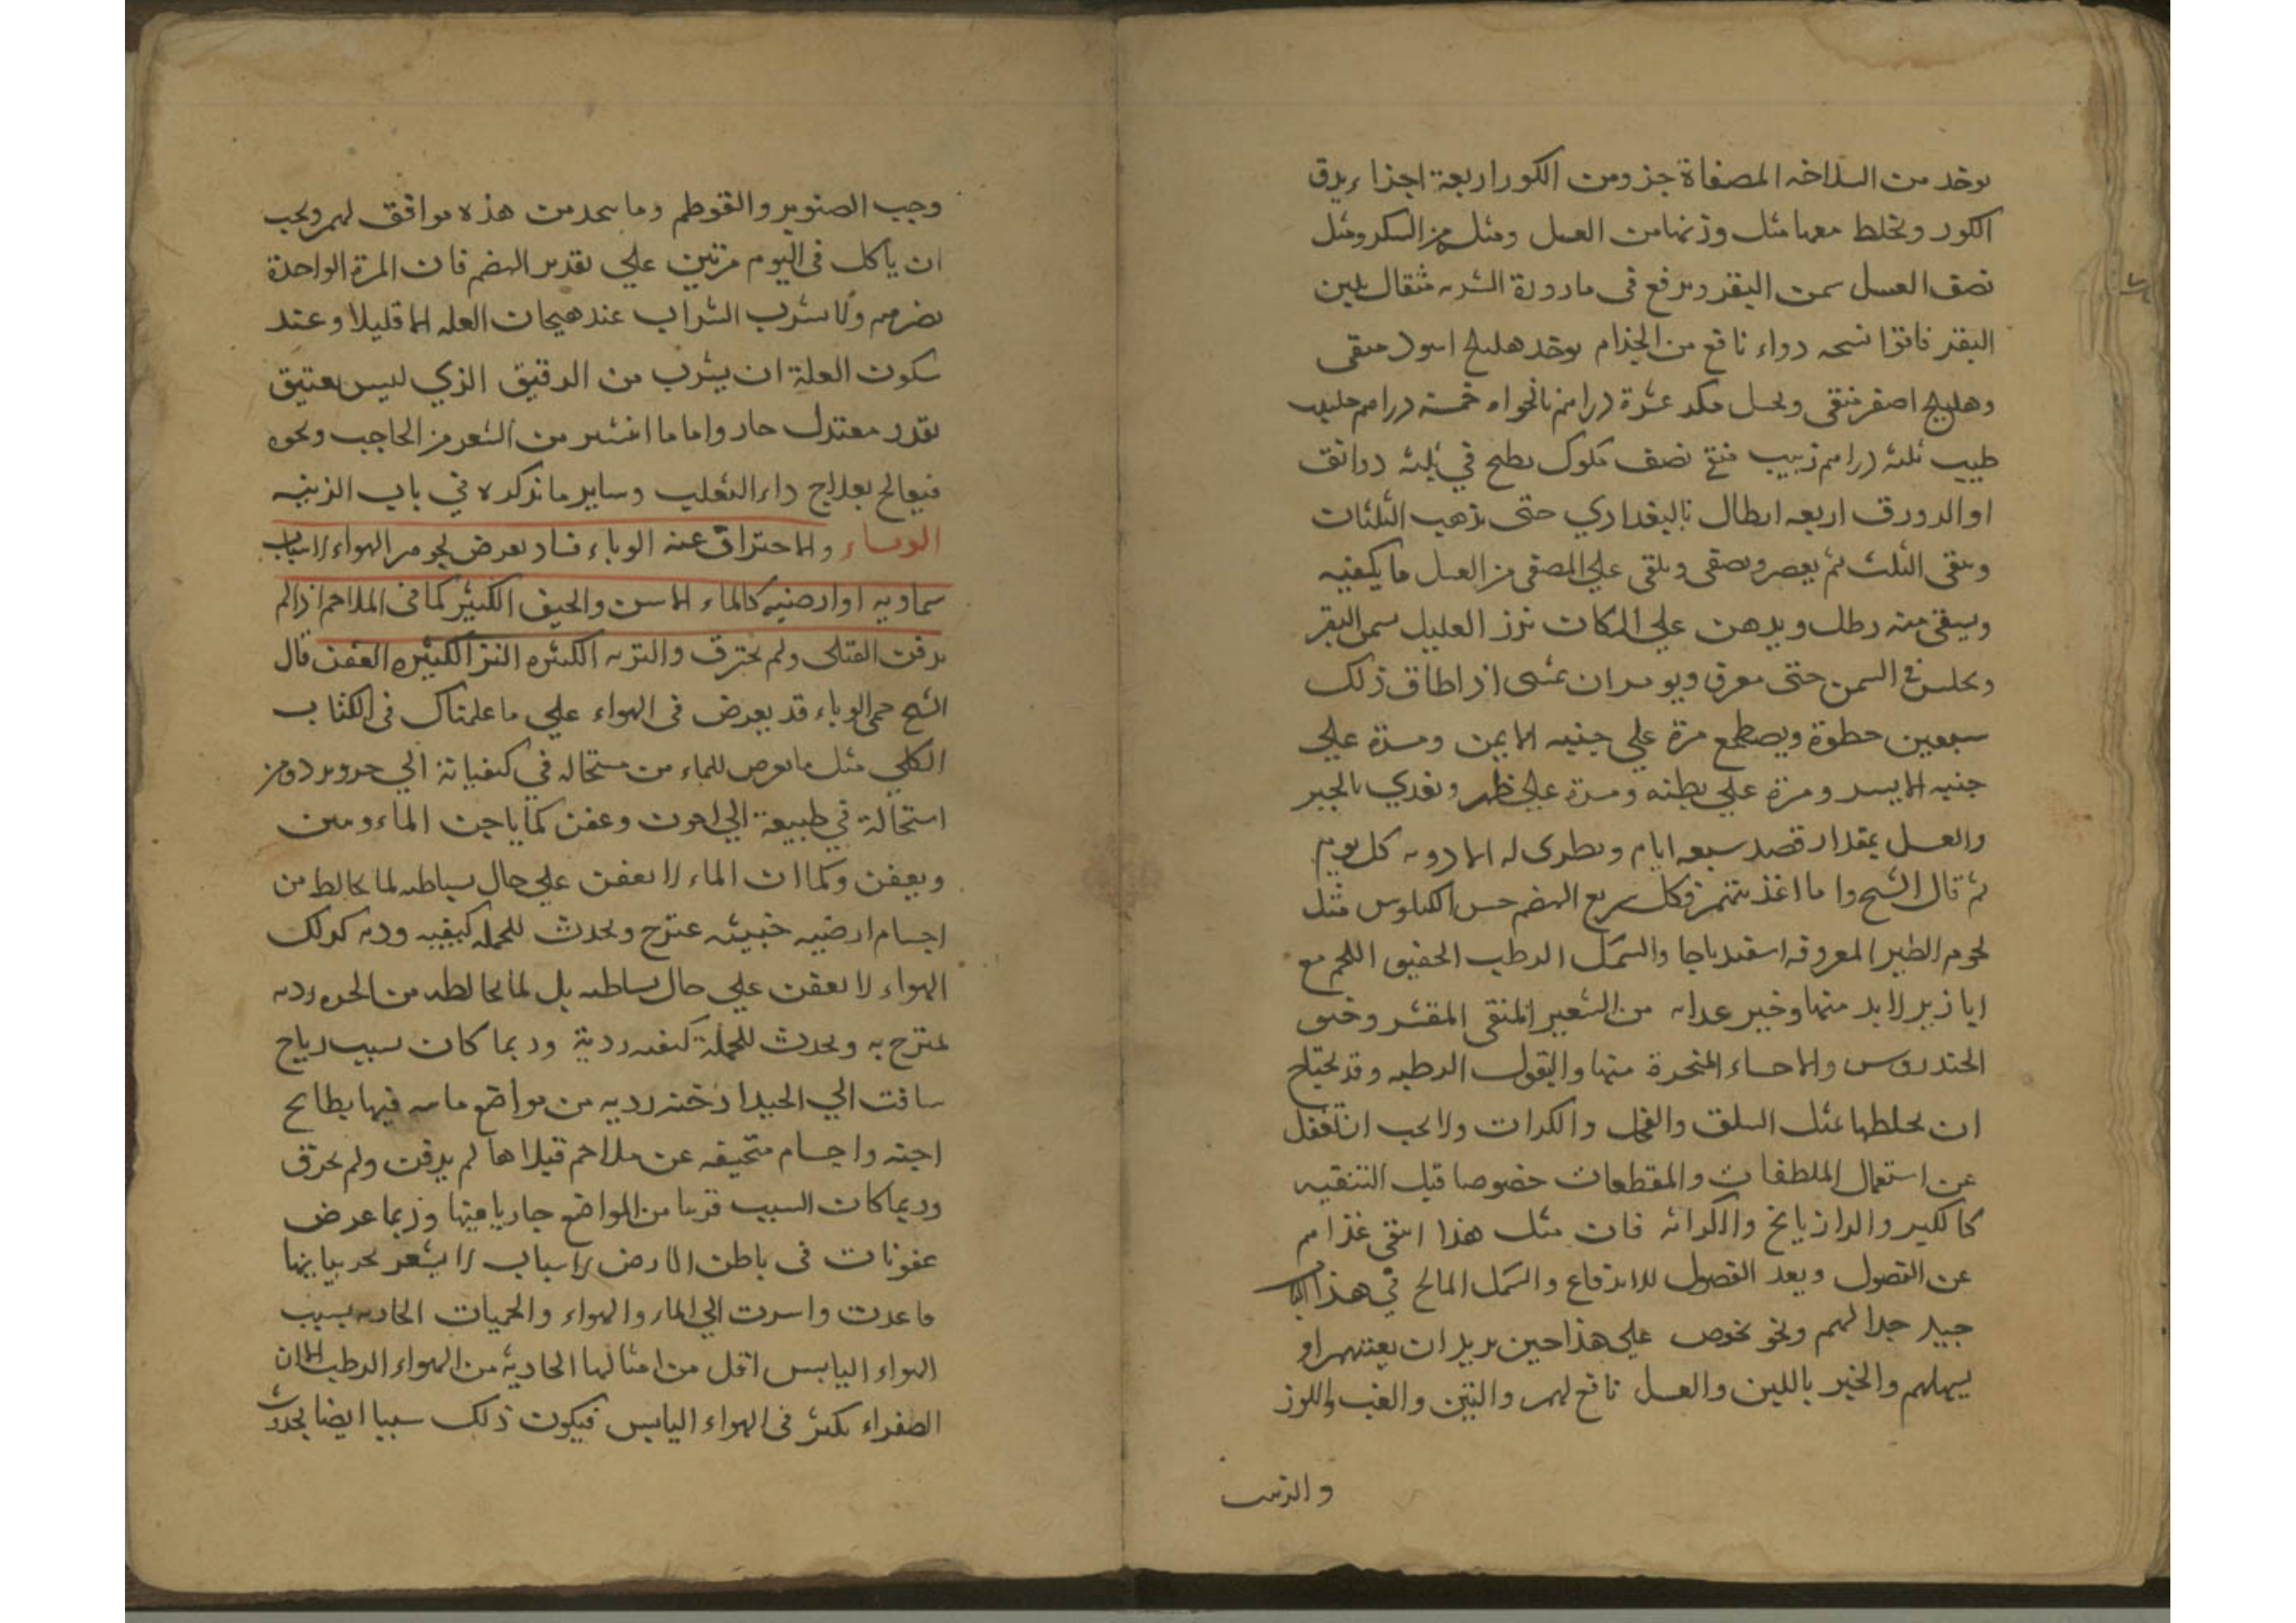 يوخد من السلاخه المصفاة جزو ومن الكور اربعة اجزاء يدق
الكور ويخلط معها مثل وزنها من العسل ومثله من السكر ومثل
نصف العسل سمن البقر ويرفع في قارورة الشربه مثقال بلبن
البقر فاترا نسخه دواء نافع من الجذام يوخد هليلج اسود منقى
وهليلج اصفر منقى ... عشرة دراهم نانخواه خمسه دراهم حليب
طيب ثلثه دراهم زبيب منقى نصف مكوك يطبخ في ثلثه دوانق
او الدورق اربعه ارطال بالبغدادي حتى يذهب الثلثان
ويبقى الثلث ثم يعصر ويصفى ويلقى علي المصفى من العسل ما يكفيه
ويسقى منه رطل ويدهن علي المكان بدن العليل بسمن البقر
ويجلس في السمن حتى يعرق ويومر ان يمشى اذا اطاق ذلك
سبعين خطوة ويضطجع مرة علي جنبه الايمن ومرة علي
جنبه الايسر ومرة علي بطنه ومرة علي ظهره ويغدي بالخبز
والعسل بمقدار قصد سبعه ايام ويطرى له الادويه كل يوم
ثم قال الشيخ واما اغذيتهم فكل سريع الهضم حسن الكيلوس مثل
لحوم الطير المعروفه اسفيدباجا والسمك الرطب الخفيف اللحم مع
ابازير لا بد منها وخير غدايه من الشعير المنقى المقشر وخبز
الحندروس والاحساء المتخدة منها والبقول الرطبه وقد يحتاج
ان يخلطها بمثل السلق والفجل والكراث ولا يجب ان تغفل
عن استعمال الملطفات والمقطعات خصوصا قبل التنقيه
كالكبر والرازيانج والكراثه فان مثل هذا ينقى غذاهم
عن الفضول ويعد الفضول للاندفاع والسمك المالح في هذا الباب
جيد جدا لهم ونحو نحوص علي هذا حين يريد ان يقيئهم او
يسهلهم والخبز باللبن والعسل نافع لهم والتين والعنب واللوز
والزبيب
وحب الصنوبر والقرطم وما يتخد من هذه موافق لهم ويجب
ان ياكل في اليوم مرتين علي تقدير الهضم فان المرة الواحدة
تضرهم ولا يشرب الشراب عند هيجان العله الا قليلا وعند
سكون العلة ان يشرب من الرقيق الذي ليس بعتيق
بقدر معتدل جاز واما ما انتثر من الشعر من الحاجب ونحوه
فيعالج بعلاج داء الثعلب وساير ما نذكره في باب الزينه
الوباء والاحتراق عنه الوباء فساد يعرض لجوهر الهواء لاسباب
سماويه او ارضيه كالماء الاسن والجيف الكثير كما في الملاحم اذا لم
يدفن القتلى ولم يحترق والتربه الكثيره النز الكثيره العفن قال
الشيخ حمى الوباء قد يعرض في الهواء علي ما علمناك في الكتاب
الكلي مثل ما يعرض للماء من استحاله في كيفياته الي حر وبرد ومن
استحالة في طبيعة الي اجون وعفن كما ياجن الماء وينتن
ويعفن وكما ان الماء لا يعفن علي حال بساطه لما يخالط من
اجسام ارضيه خبيثه يمتزج ويحدث للجمله كيفيه رديه كذلك
الهواء لا يعفن علي حال بساطه بل لما يخالطه من ابخره رديه
يمتزج به ويحدث للجملة كيفيه ردية وربما كان سبب رياح
ساقت الي الجيد ادخنه رديه من مواضع نائيه فيها بطائح
اجنه واجسام متجيفه عن ملاحم قتلاها لم يدفن ولم يحرق
وربما كان السبب قريبا من المواضع جاريا فيها وربما عرض
عفونات في باطن الارض لاسباب لا يشعر بجزيياتها
فاعدت واسرت الي الماء والهواء والحميات الحاده بسبب
الهواء اليابس اقل من امثالها الحادثة من الهواء الرطب الا ان
الصفراء يكثر في الهواء اليابس فيكون ذلك سببا ايضا لحدوث